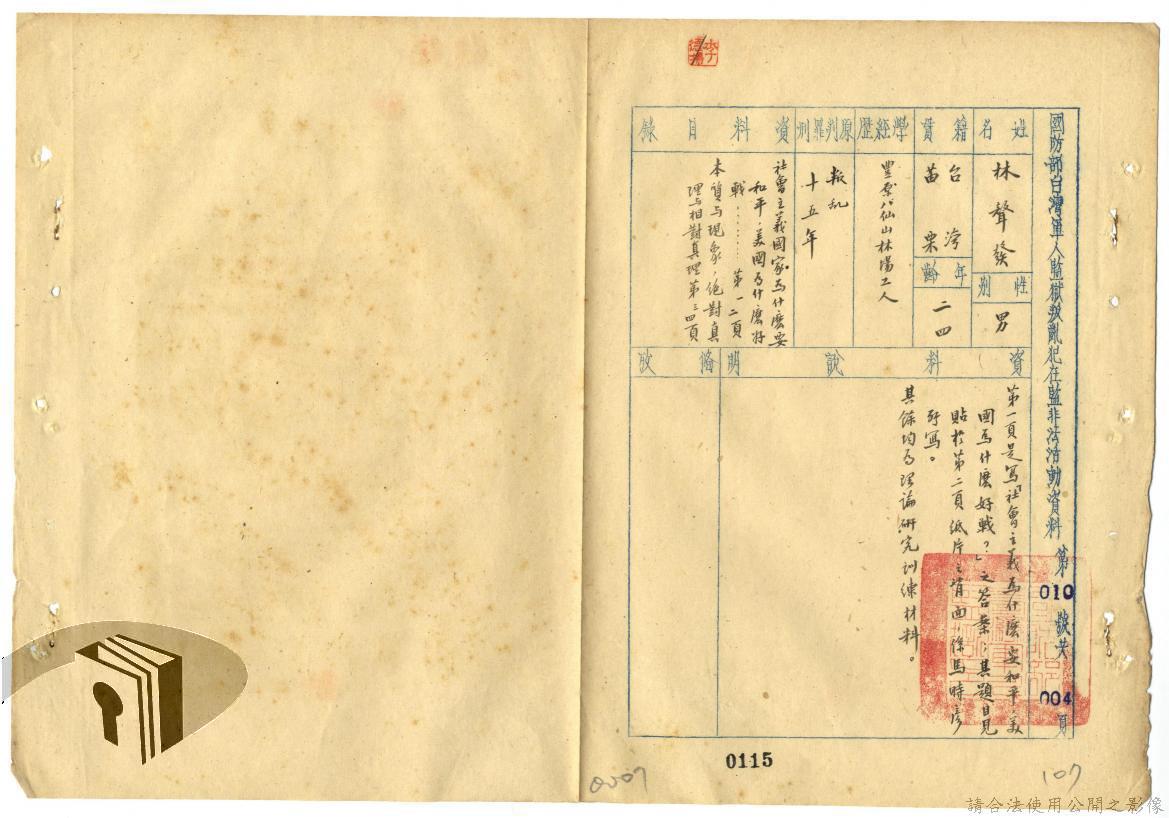 國防部台灣軍人監獄叛亂犯在監非法活動資料 第 010 號共 004 頁
姓名
林聲發
性別
男
籍貫
台灣
苗栗
年齡
二四
學經歷
豐原八仙山林場工人
原判罪刑
叛乱
十五年
資料目錄
社會主義國家為什麽要
和平，美國為什麽好
戰………第一二頁
本質与現象，絕對真
理与相對真理第三四頁
資料說明
第一頁是寫「社會主義為什麽要和平，美
國為什麽好戰？」之答案，其題目見
貼於第二頁紙片之背面，係馬時彥
所寫。
其餘均為理論研究訓練材料。
備攷
0115
107
請合法使用公開之影像